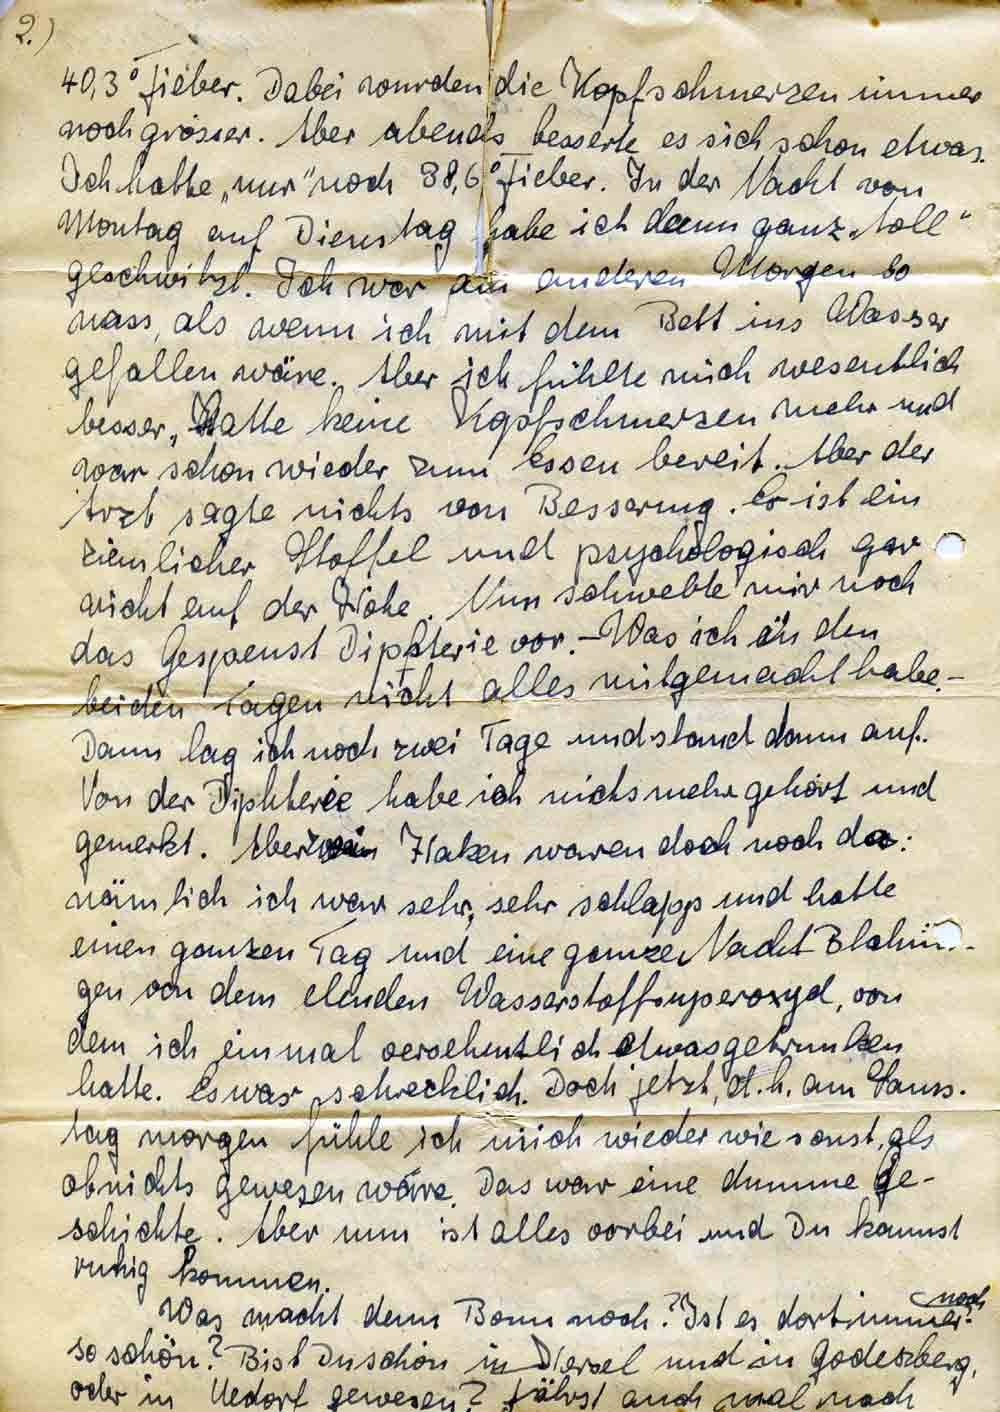 2.)
40,3° Fieber. Dabei wurden die Kopfschmerzen immer
noch grösser. Aber abends besserte es sich schon etwas.
Ich hatte „nur“ noch 38,6° Fieber. In der Nacht von
Montag auf Dienstag habe ich dann ganz „toll“
geschwitzt. Ich war am anderen Morgen so
nass, als wenn ich mit dem Bett ins Wasser
gefallen wäre. Aber ich fühlte mich wesentlich
besser, Hatte keine Kopfschmerzen mehr und
war schon wieder zum Essen bereit. Aber der
Arzt sagte nichts von Besserung. Er ist ein
ziemlicher Stoffel und psychologisch gar
nicht auf der Höhe. Nun schwebte mir noch
das Gespenst Diphterie vor. – Was ich in den
beiden Tagen nicht alles mitgemacht habe. –
Dann lag ich noch zwei Tage und stand dann auf.
Von der Diphterie habe ich nichs mehr gehört und
gemerkt. Aber zwei Haken waren doch noch da:
nämlich ich war sehr, sehr schlapp und hatte
einen ganzen Tag und eine ganze Nacht Blähun-
gen von dem elenden Wasserstoffsuperoxyd, von
dem ich einmal versehentlich etwas getrunken
hatte. Es war schrecklich. Doch jetzt, d.h. am Sams-
tag morgen fühle ich mich wieder wie sonst, als
ob nichts gewesen wäre. Das war eine dumme Ge-
schichte. Aber nun ist alles vorbei und Du kannst
ruhig kommen.
Was macht denn Bonn noch? Ist es dort immer noch
so schön? Bist Du schon in Hersel und in Godesberg,
oder in Uedorf gewesen? Fährst auch mal nach